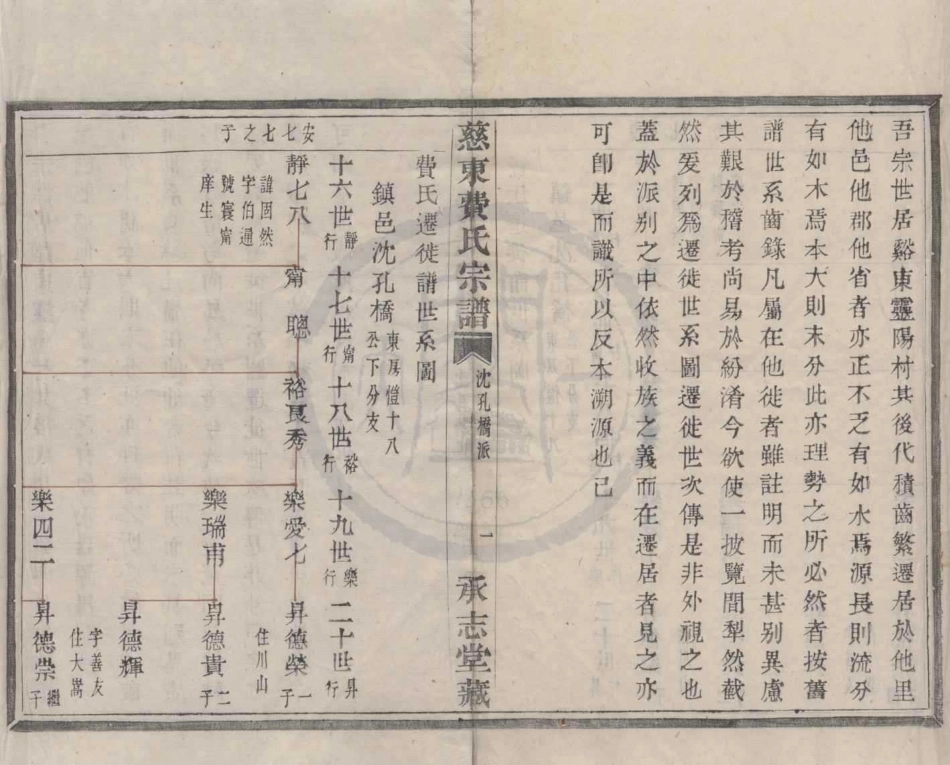 吾宗世居谿東靈陽村其後代積齒繁遷居於他里
他邑他郡他省者亦正不乏有如水焉源長則流分
有如木焉本大則末分此亦理勢之所必然者按舊
譜世系齒錄凡屬在他徙者雖註明而未甚别異慮
其艱於稽考尚易於紛淆今欲使一披覽間犁然截
然爰列爲遷徙世系圖遷徙世次傳是非外視之也
蓋於派别之中依然收族之義而在遷居者見之亦
可卽是而識所以反本溯源也已
慈東費氏宗譜
沈孔橋派
一
承志堂藏
費氏遷徙譜世系圖
鎮邑沈孔橋
東房愷十八
公下分支
十六世靜行
十七世甯行
十八世裕行
十九世樂行
二十世昇行
安七七之于
靜七八
諱因然
字伯通
號寰甯
庠生
甯聰
裕良秀
樂愛七
昇德榮一子
住川山
樂瑞甫
昇德貴二子
昇德輝
字善友
住大嵩
樂四二
昇德崇繼子